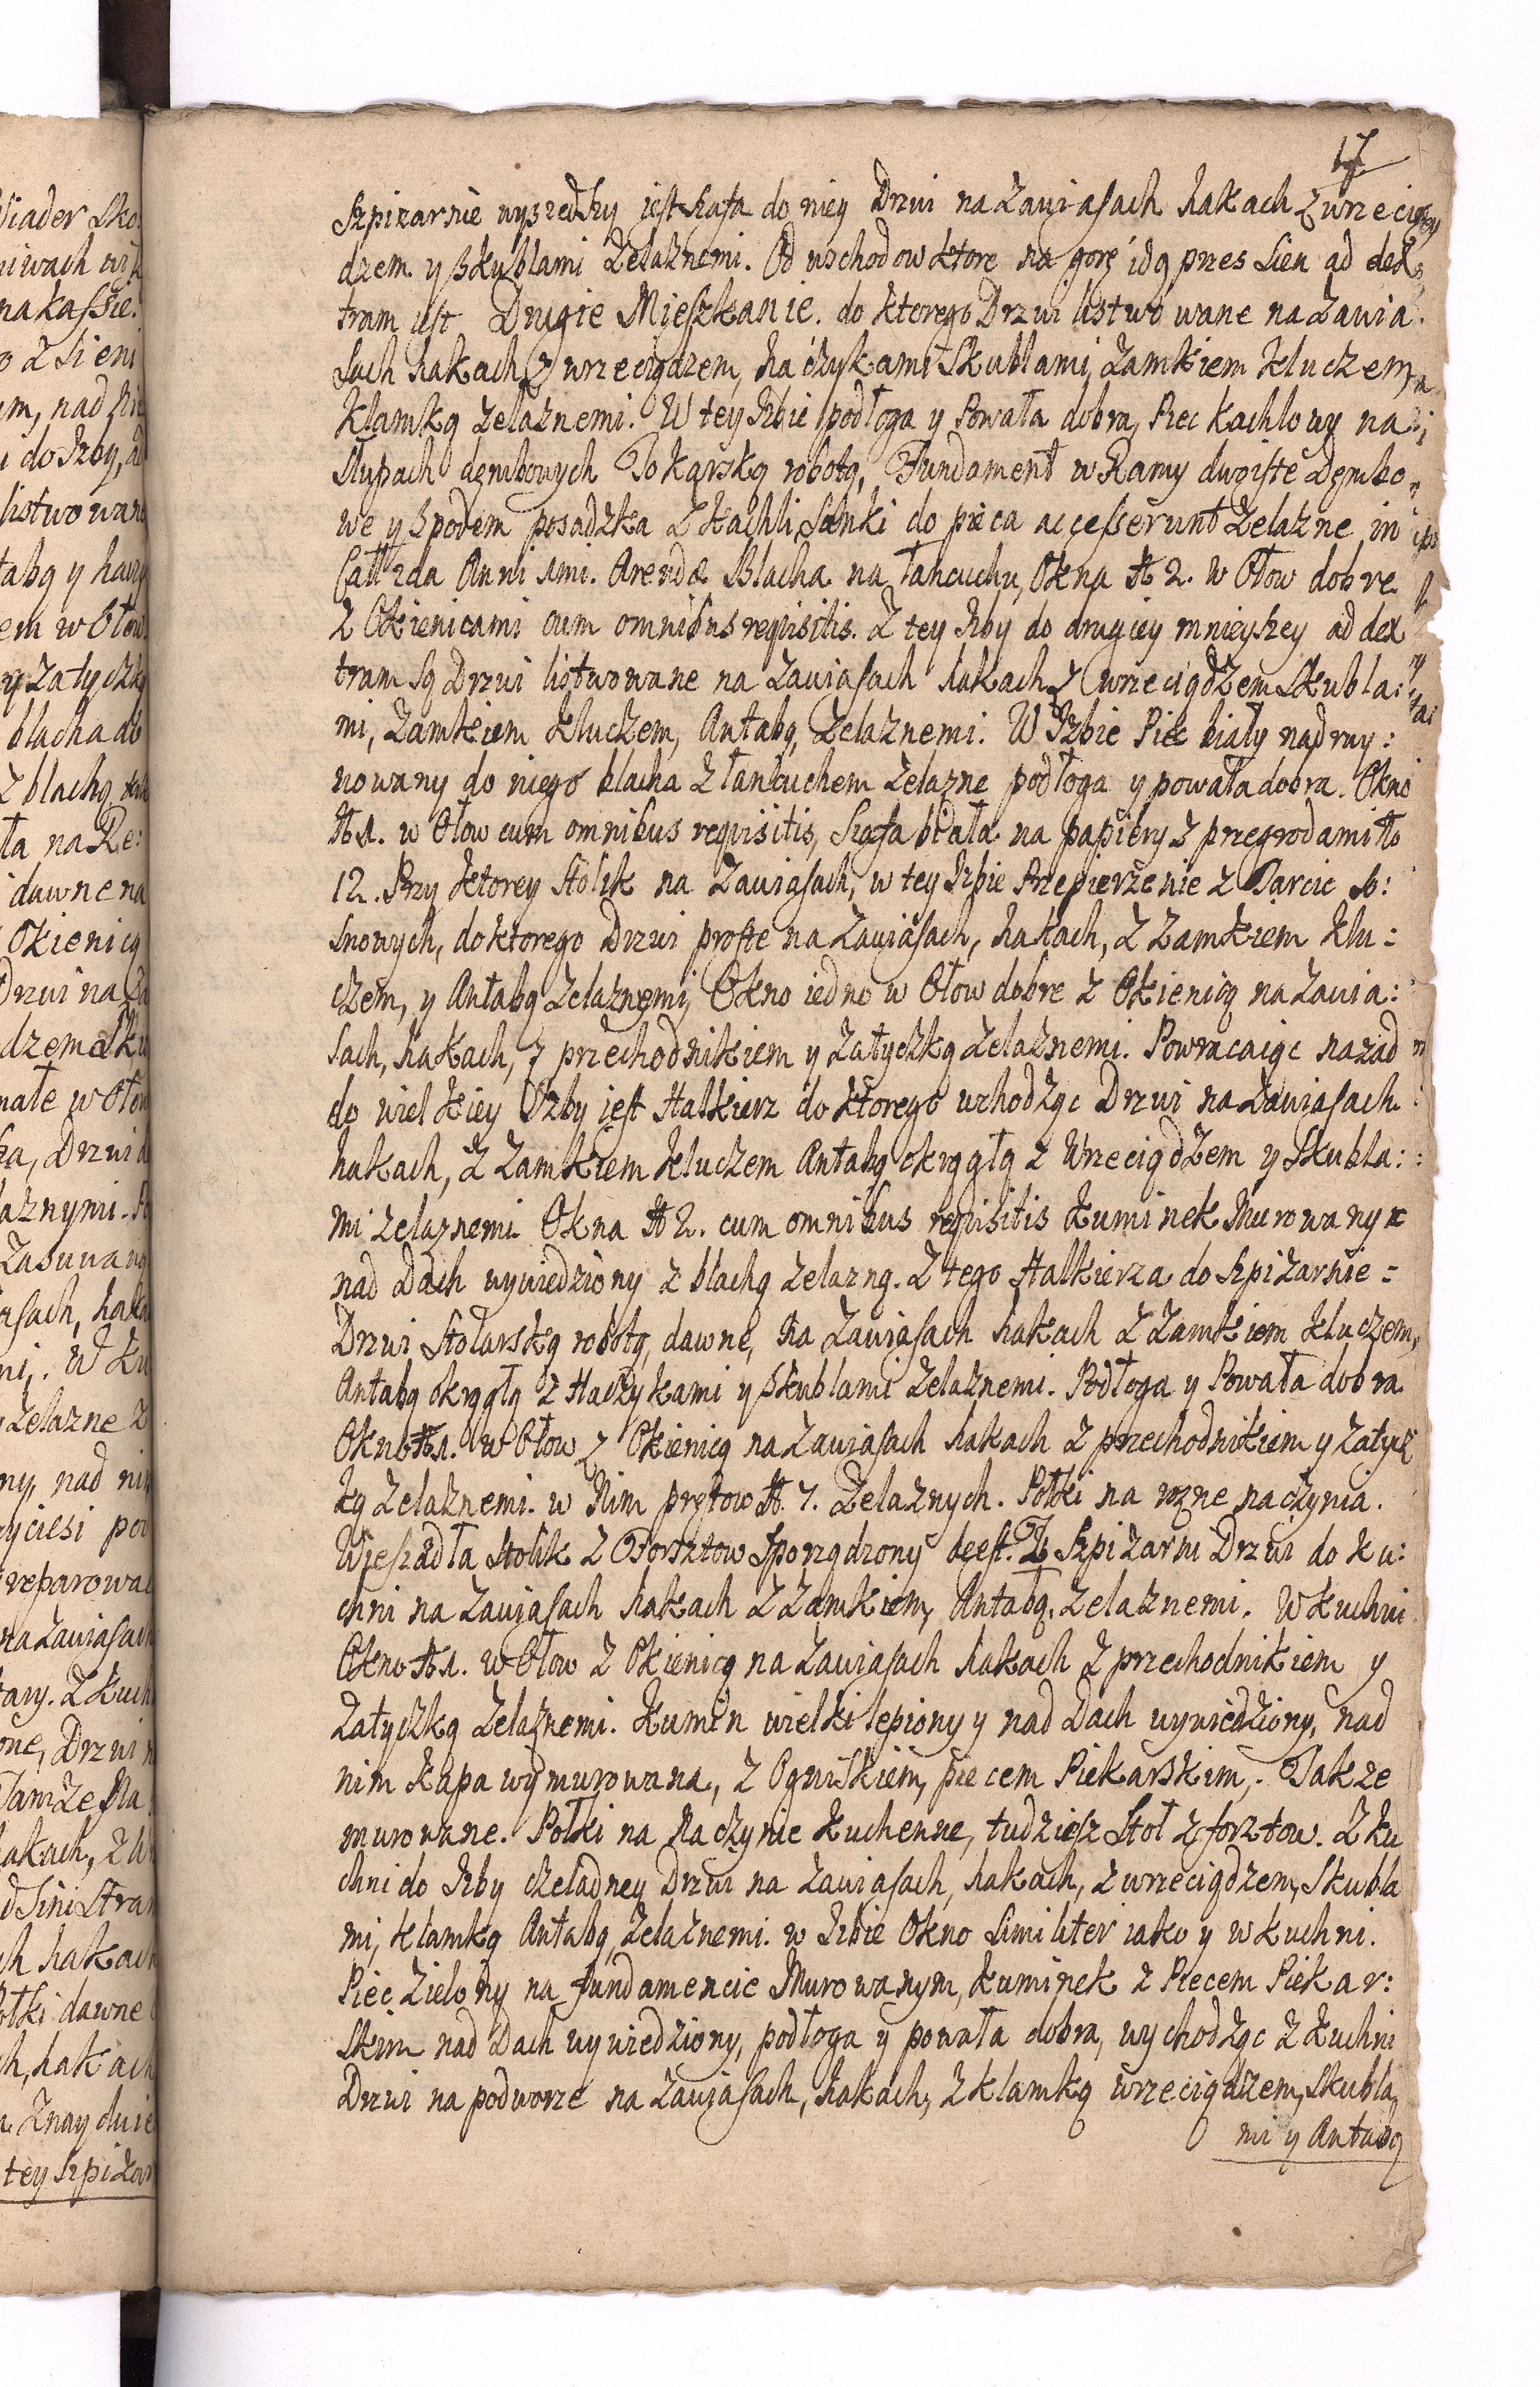 17
Szpizarnie wyszedszy jest szafa do niey Drzwi na Zawiasach hakach z wrzecią
dzem y Skublami Zelaznemi. Od wschodow ktore na gorę idą przes Sien ad dex
tram jest Drugie Mięszkanie. do ktorego Drzwi listwowane na Zawia.
sach hakach z wrzeciądzem, haczykami Skublami, Zamkiem kluczem,
klamką zelaznemi. W tey Izbie podłoga y Powała dobra, Piec kachlowy na
słupach dęmbowych Tokarską robotą, Fundament w Ramy dwoiste Dęmbo
we y Spodem posadzka z kachli Sanki do pieca accesserunt Zelazne in
Call 2da Anni 1mi. Arendæ Blacha na łancuchu, Okna № 2. w Ołow dobre
z Okienicami cum omnibus requisitis. Z tey Izby do drugiey mnieyszey ad dex
tram są Drzwi listwowane na Zawiasach hakach z wrzeciądzem Skubla:
mi, Zamkiem kluczem, Antabą, Zelaznemi. W Izbie Piec biały nadruy:
nowany do niego blacha z łancuchem zelazne podłoga y powała dobra. Okno
№ 1. w Ołow cum omnibus requisitis, Szafa biała na papiery z przegrodami №
12. Przy ktorey stolik na Zawiasach, w tey Izbie Przepierzenie z Tarcic so:
snowych, do ktorego Drzwi proste na Zawiasach, hakach, z Zamkiem klu:
czem, y Antabą Zelaznemi, Okno iedno w Ołow dobre z Okienicą na Zawia:
sach, hakach, z przechodnikiem y Zatyczką Zelaznemi. Powracaiąc nazad
do wielkiey Izby jest Halkierz do ktorego wchodząc Drzwi na Zawiasach
hakach, z Zamkiem kluczem Antabą okrągłą z Wrzeciądzem y Skubla:
mi zelaznemi Okna № 2. cum omnibus requisitis Kuminek Murowany
nad Dach wywiedziony z blachą zelazną. Z tego Halkierza do Szpizarnie:
Drzwi Stolarską robotą, dawne, na Zawiasach hakach z Zamkiem kluczem,
Antabą okrągłą z Haczykami y Skublami Zelaznemi. Podłoga y Powała dobra
Okno № 1. w Ołow z Okienicą na Zawiasach hakach z przechodnikiem y Zatycz
ką Zelaznemi. w Nim prętow № 7. Zelaznych. Połki na rozne naczynia.
Wieszadła stolik z Forsztow sporządzony deest. Z Szpizarni Drzwi do ku:
chni na Zawiasach hakach z Zamkiem, Antabą, Zelaznemi. W kuchni
Okno № 1. w Ołow z Okienicą na Zawiasach hakach z przechodnikiem y
Zatyczką Zelaznemi. Kumin wielki lepiony y nad Dach wywiedziony, nad
nim kapa wymurowana, z Ogniskiem, piecem Piekarskim,. Takze
murowane. Połki na Naczynie kuchenne, tudziesz Stoł z forsztow. Z ku
chni do Izby czeladney Drzwi na Zawiasach, hakach, z wrzeciądzem, Skubla
mi, klamką Antabą, Zelaznemi. w Izbie Okno Similiter iako y w kuchni.
Piec Zielony na fundamencie Murowanym, Kuminek z Piecem Piekar:
skim nad Dach wywiedziony, podłoga y powała dobra, wychodząc z kuchni
Drzwi na podworze na Zawiasach, hakach, z klamką wrzeciądzem, Skubla,
mi y Antabą